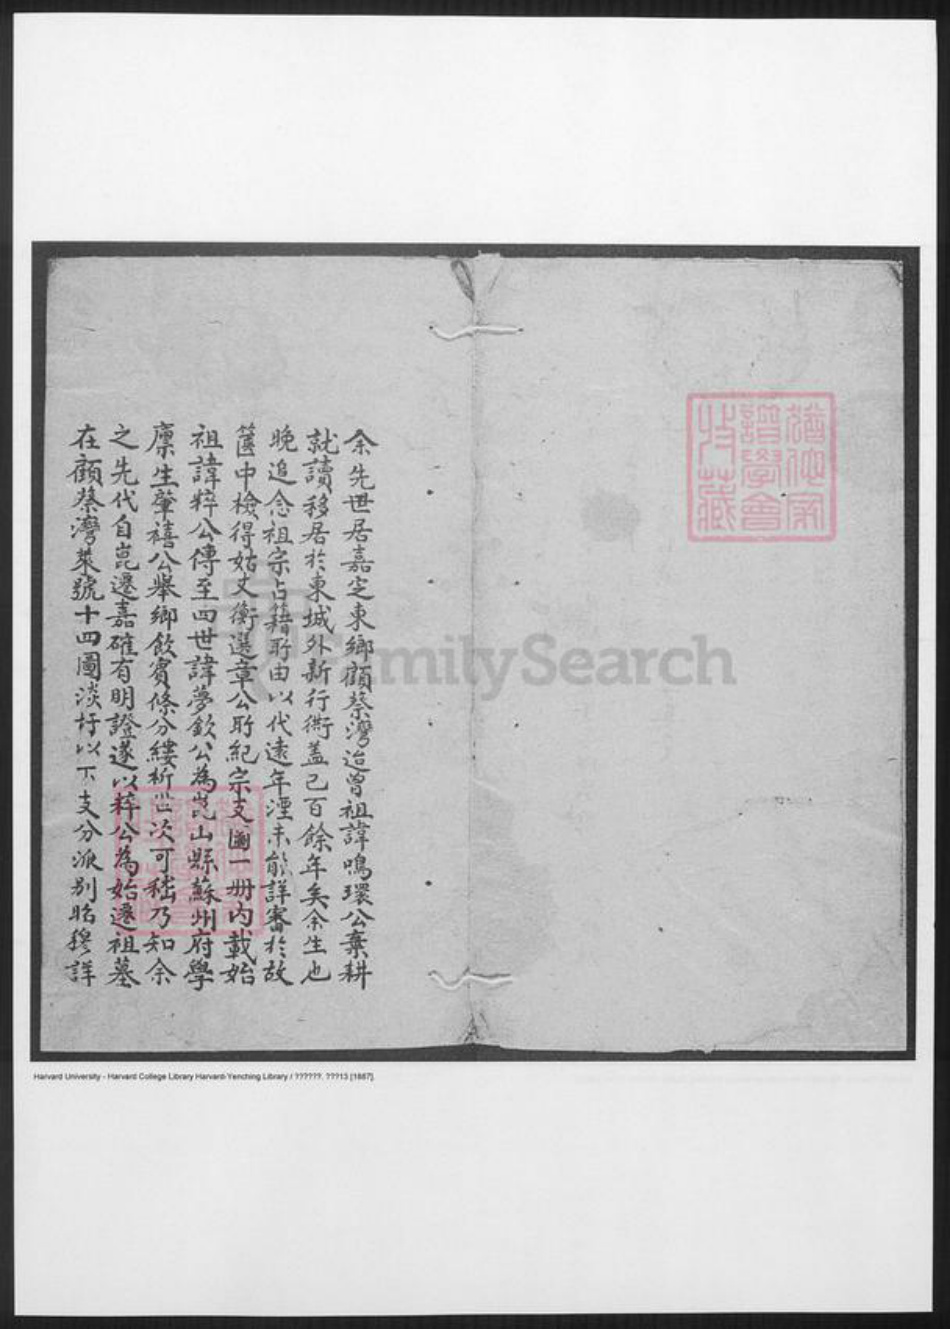 余先世居嘉定東鄉顧蔡灣迨曾祖諱鳴環公棄耕
就讀移居於東城外新行衖蓋已百餘年矣余生也
晚追念祖宗占籍所由以代遠年湮未能詳審於故
篋中檢得姑丈衡選章公所紀宗支圖一册內載始
祖諱粹公傳至四世諱夢欽公為崑山縣蘇州府學
廩生肇禧公舉鄉飲賓條分縷析世次可稽乃知余
之先代自崑遷嘉確有明證遂以粹公為始遷祖墓
在顧蔡灣萊號十四圖淡圩以下支分派別昭穆詳
譜學會
收藏
FamilySearch
Harvard University - Harvard College Library Harvard-Yenching Library / ??????. ???13 [1887].